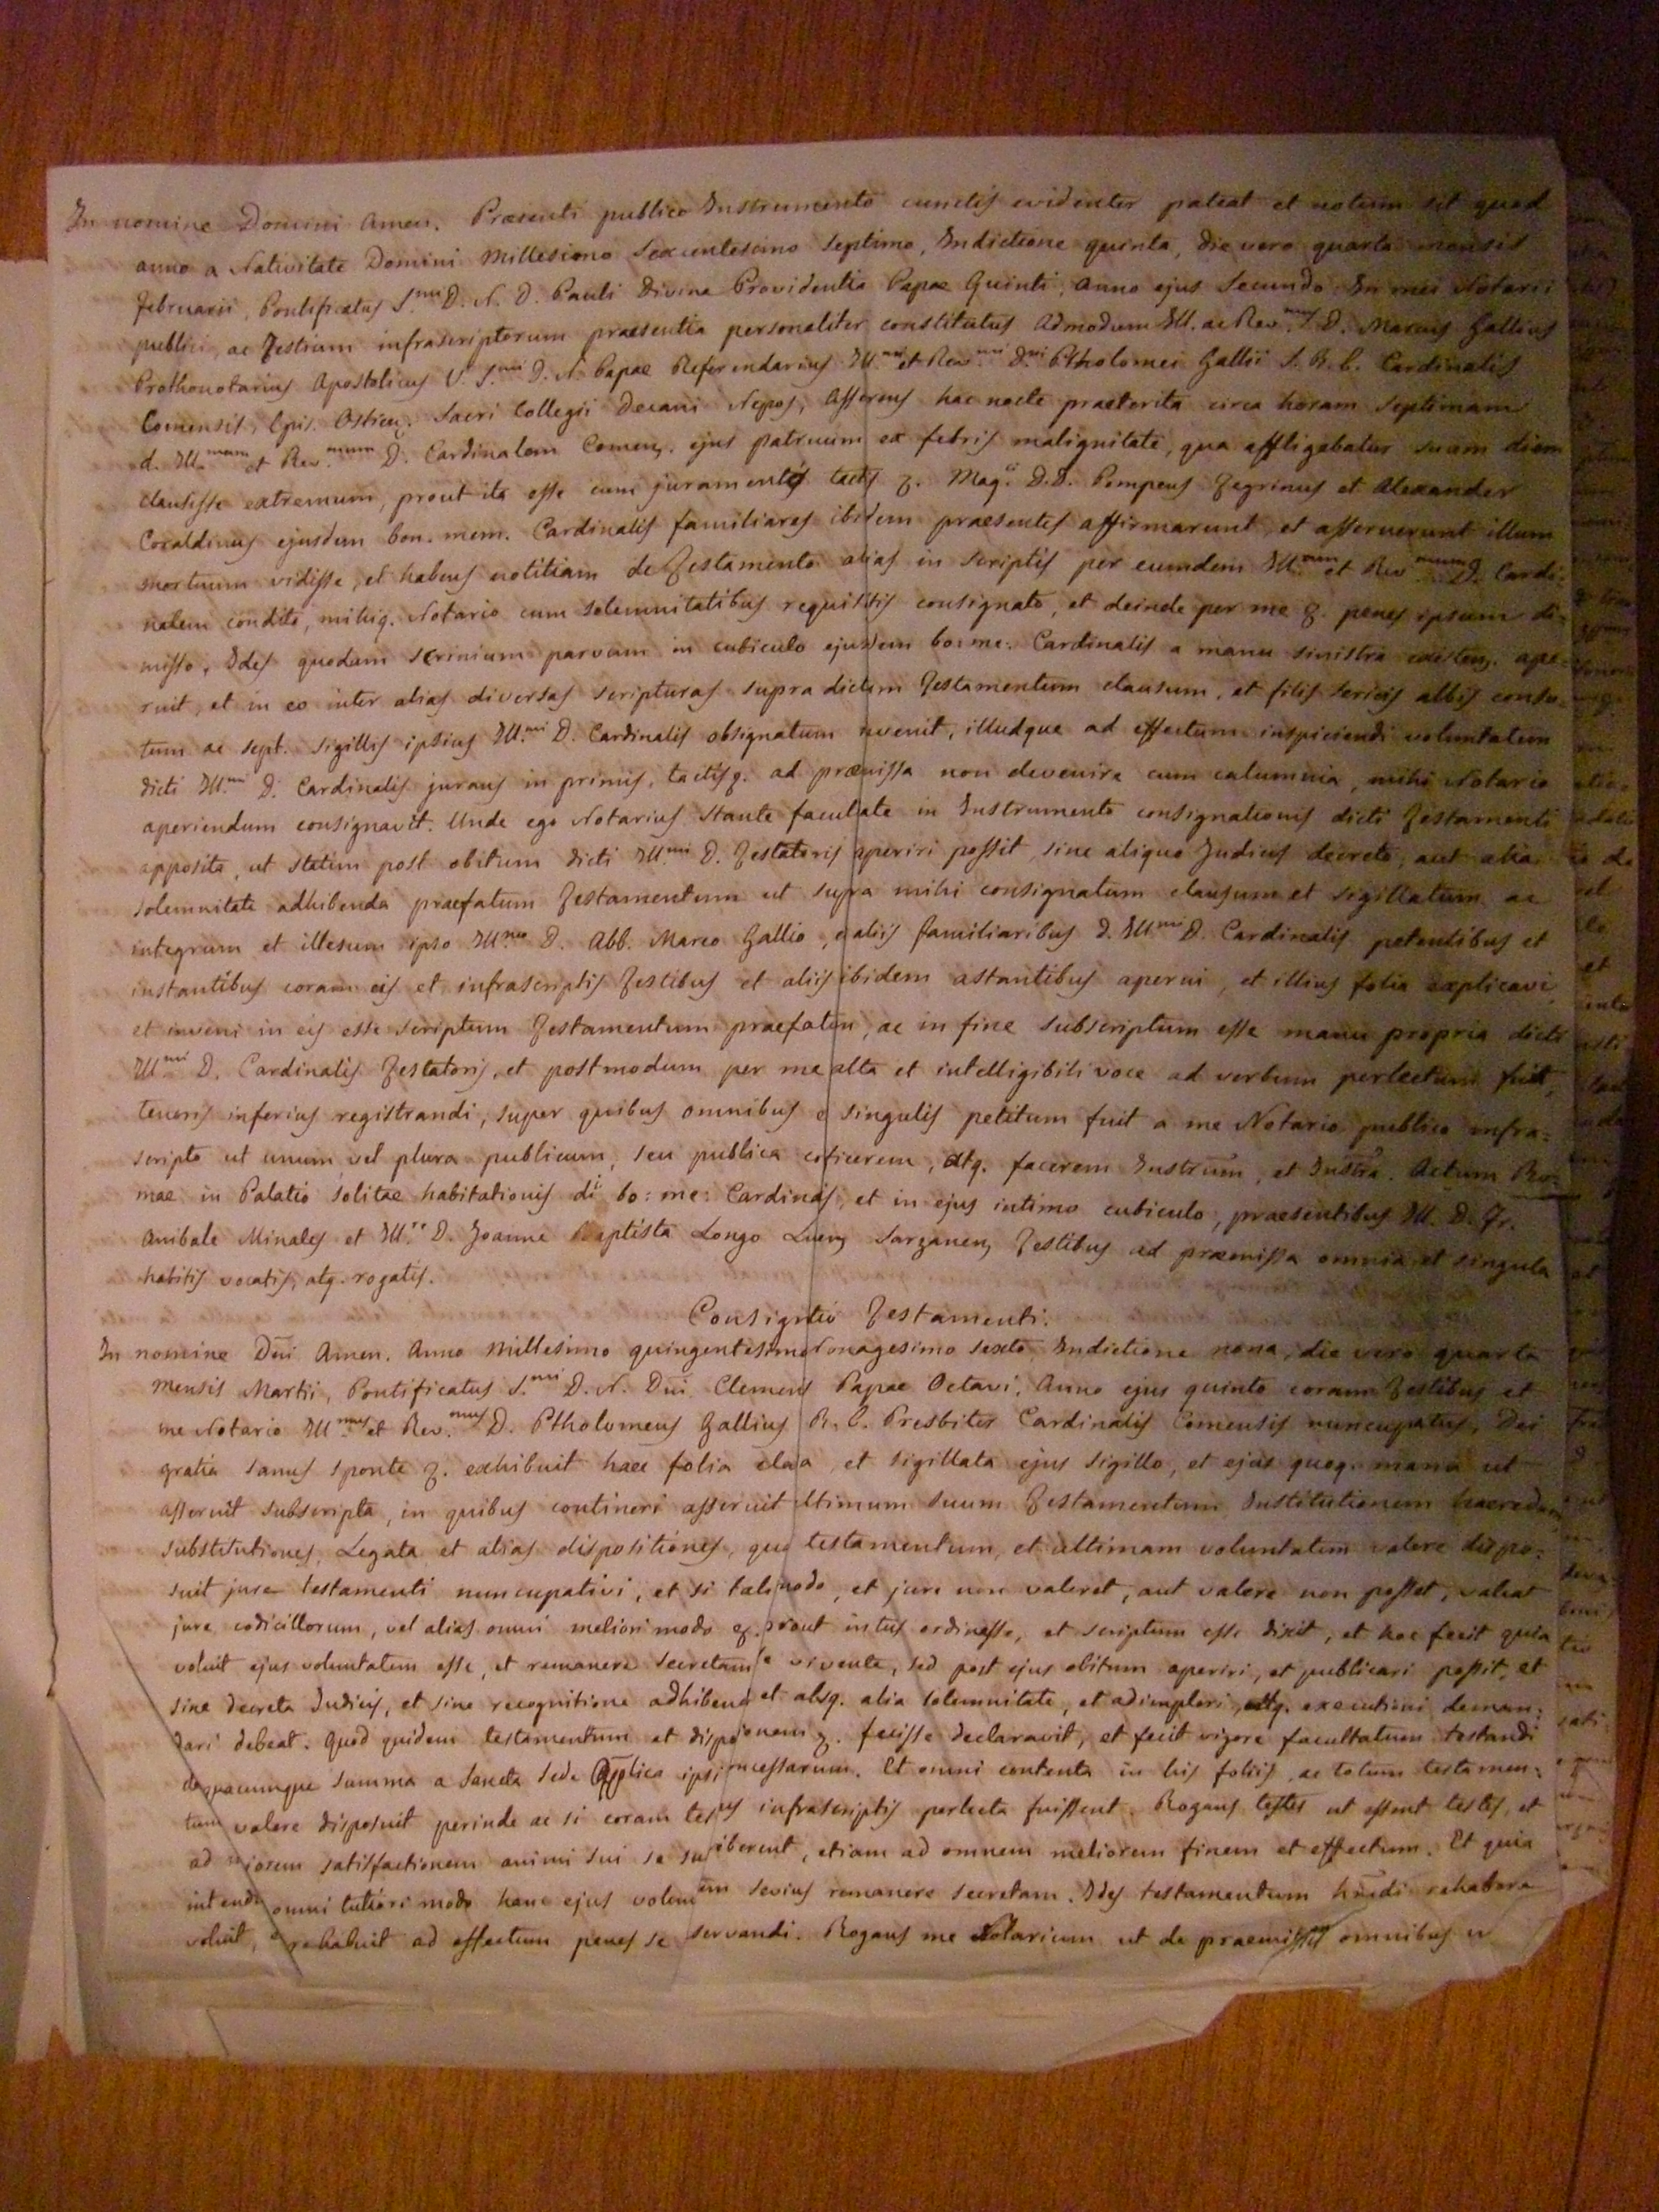 In nomine Domini Amen. Praesenti publico Instrumento cunctis evidenter pateat et notum sit quod
anno a Nativitate Domini Millesimo Sexcentesimo Septimo, Indictione quinta, die vero quarta mensis
februarii, Pontificatus S.mi D. N. D. Pauli Divina Providentia Papae Quinti, Anno ejus Secundo In mei Notarii
publici, ac Testium infrascriptorum praesentia personaliter constitutus Admodum Ill. ac Rev.mus D. Marcus Gallius
Prothonotarius Apostolicus V. S.mi D. N. Papae Referendarius Ill.mi et Rev.mi D.ni Ptholomei Gallii S. R. E. Cardinalis
Comensis, Epis. Ostien. Sacri Collegii Decani Nepos, Asserens hac nocte praeterita circa horam septimam
d. Ill.mum et Rev.mum D. Cardinalem Comen. ejus patruum ex febris malignitate, qua affligebatur suam diem
clausisse extremum, prout ita esse cum juramento tactis q. Mag.ci D.D. Pompeus Zegrinus et Alexander
Coraldinus ejusdem bon. mem. Cardinalis familiares ibidem praesentes affirmarunt, et asseruerunt illum
mortuum vidisse, et habens notitiam de Testamento alias in scriptis per eumdem Ill.mum et Rev.mum D. Cardi=
nalem condito, mihiq. Notario cum solemnitatibus requisitis consignato, et deinde per me q. penes ipsum di=
misso, Ides quodam scrinium parvum in cubiculo ejusdem bo: me: Cardinalis a manu sinistra existens. ape=
ruit, et in eo inter alias diversas scripturas supra dictum Testamentum clausum, et filis sericis albis consu=
tum ac sept. sigillis ipsius Ill.mi D. Cardinalis obsignatum invenit, illudque ad effectum inspiciendi voluntatem
dicti Ill.mi D. Cardinalis jurans in primis, tactis q. ad praemissa non devenire cum calumnia, mihi Notario
aperiendum consignavit. Unde ego Notarius stante facultate in Instrumento consignationis dicti Testamenti
apposita, ut statim post obitum dicti Ill.mi D. Testatoris aperiri possit sine aliquo Judicis decreto, aut alia
solemnitate adhibenda praefatum Testamentum ut supra mihi consignatum clausum et sigillatum ac
integrum et illesum ipso Ill.mo D. Abb. Marco Gallio, aliis familiaribus D. Ill.mi D. Cardinalis petentibus et
instantibus coram eis et infrascriptis Testibus et aliis ibidem astantibus aperui, et illius folia explicavi,
et inveni in eis esse scriptum Testamentum praefatum, ac in fine subscriptum esse manu propria dicti
Ill.mi D. Cardinalis Testatoris, et postmodum per me alta et intelligibili voce ad verbum perlectum fuit,
tenoris inferius registrandi, super quibus omnibus e singulis petitum fuit a me Notario publico infra=
scripto ut unum vel plura publicum, seu publica conficerem, atq. facerem Instrum, et Instra. Actum Ro=
mae in Palatio solitae habitationis di bo: me: Cardinalis, et in ejus intimo cubiculo, praesentibus Ill. D. Fr.
Anibale Minales et Ill. D. Joanne Baptista Longo Luen Sarzanen, Testibus ad praemissa omnia et singula
habitis vocatis, atq. rogatis.
Consigntio Testamenti.
In nomine Dni Amen. Anno millesimo quingentesimo Nonagesimo sexto Indictione nona, die vero quarta
mensis Martii, Pontificatus S.mi D. N. Dni Clemens Papae Octavi, Anno ejus quinto coram Testibus et
me Notario Ill.mus et Rev.mus D. Ptholomeus Gallius R. E. Presbiter Cardinalis Comensis nuncupatus, Dei
gratia sanus sponte q. exhibuit haec folia clasa, et sigillata ejus sigillo, et ejus quoq. manu ut
asseruit subscripta, in quibus contineri asseruit ultimum suum Testamentum Institutionem haeredum,
substitutiones, Legata et alias dispositiones, quod testamentum, et ultimam voluntatem valere dispo=
suit jure testamenti nuncupativi, et si tali modo, et jure non valeret, aut valere non posset, valeat
jure codicillorum, vel alias omni meliori modo q. prout intus ordinasse, et scriptum esse dixit, et hoc fecit quia
voluit ejus voluntatem esse, et remanere secretam se vivente, sed post ejus obitum aperiri, et publicari possit, et
sine decreto Judicis, et sine recognitione adhibend et absq. alia solemnitate, et adimpleri, atq. executioni deman=
dari debeat. Quod quidem testamentum et dispositionem q. fecisse declaravit, et fecit vigore facultatum testandi
de quacumque summa a Sancta Sede Applica ipsi concessarum. Et omni contenta in his foliis, ac totum testamen=
tum valere disposuit perinde ac si coram testibus infrascriptis perlecta fuissent. Rogans testes ut essent testes, et
ad majorem satisfactionem animi sui se subscriberent, etiam ad omnem meliorem finem et effectum. Et quia
intendit omni tutiori modo hanc ejus voluntatem servius remanere secretam. Ides testamentum hmdi rehabere
voluit, e rehabuit ad effectum penes se servandi. Rogans me Notarium ut de praemissis omnibus